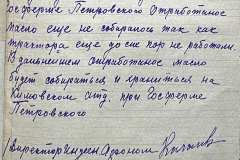 осферме Петровского Отработанное
масло еще не собиралось так как
трактора еще до сих пор не работали.
В дальнейшем отработанное масло
будет собираться и храниться на
при Госферме
Петровского
Директор
Агроном